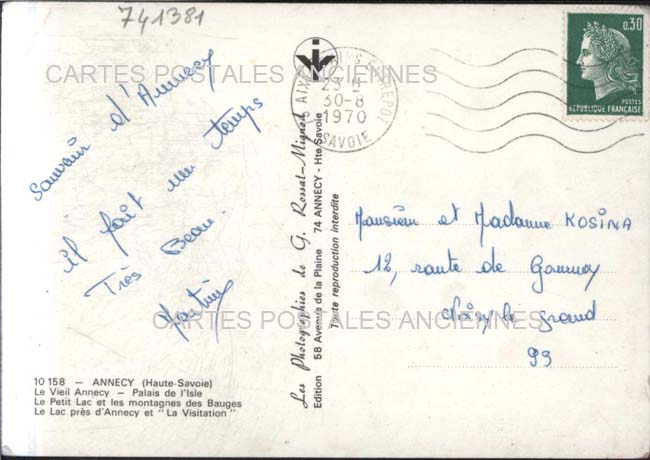 741381
CARTES POSTALES ANCIENNES
Souvenir d'Annecy
il fait un temps
Très Beau.
Martine
10 158 — ANNECY (Haute-Savoie)
Le Vieil Annecy — Palais de l'Isle
Le Petit Lac et les montagnes des Bauges
Le Lac près d'Annecy et "La Visitation"
Les Photographies de G. Rossat-Mignod
Edition 58 Avenue de la Plaine 74 ANNECY - Hte Savoie
Toute reproduction interdite
AIX
30-8
1970
SAVOIE
0,30
POSTES
RÉPUBLIQUE FRANÇAISE
Monsieur et Madame KOSINA
12, route de
le Grand
CARTES POSTALES ANCIENNES